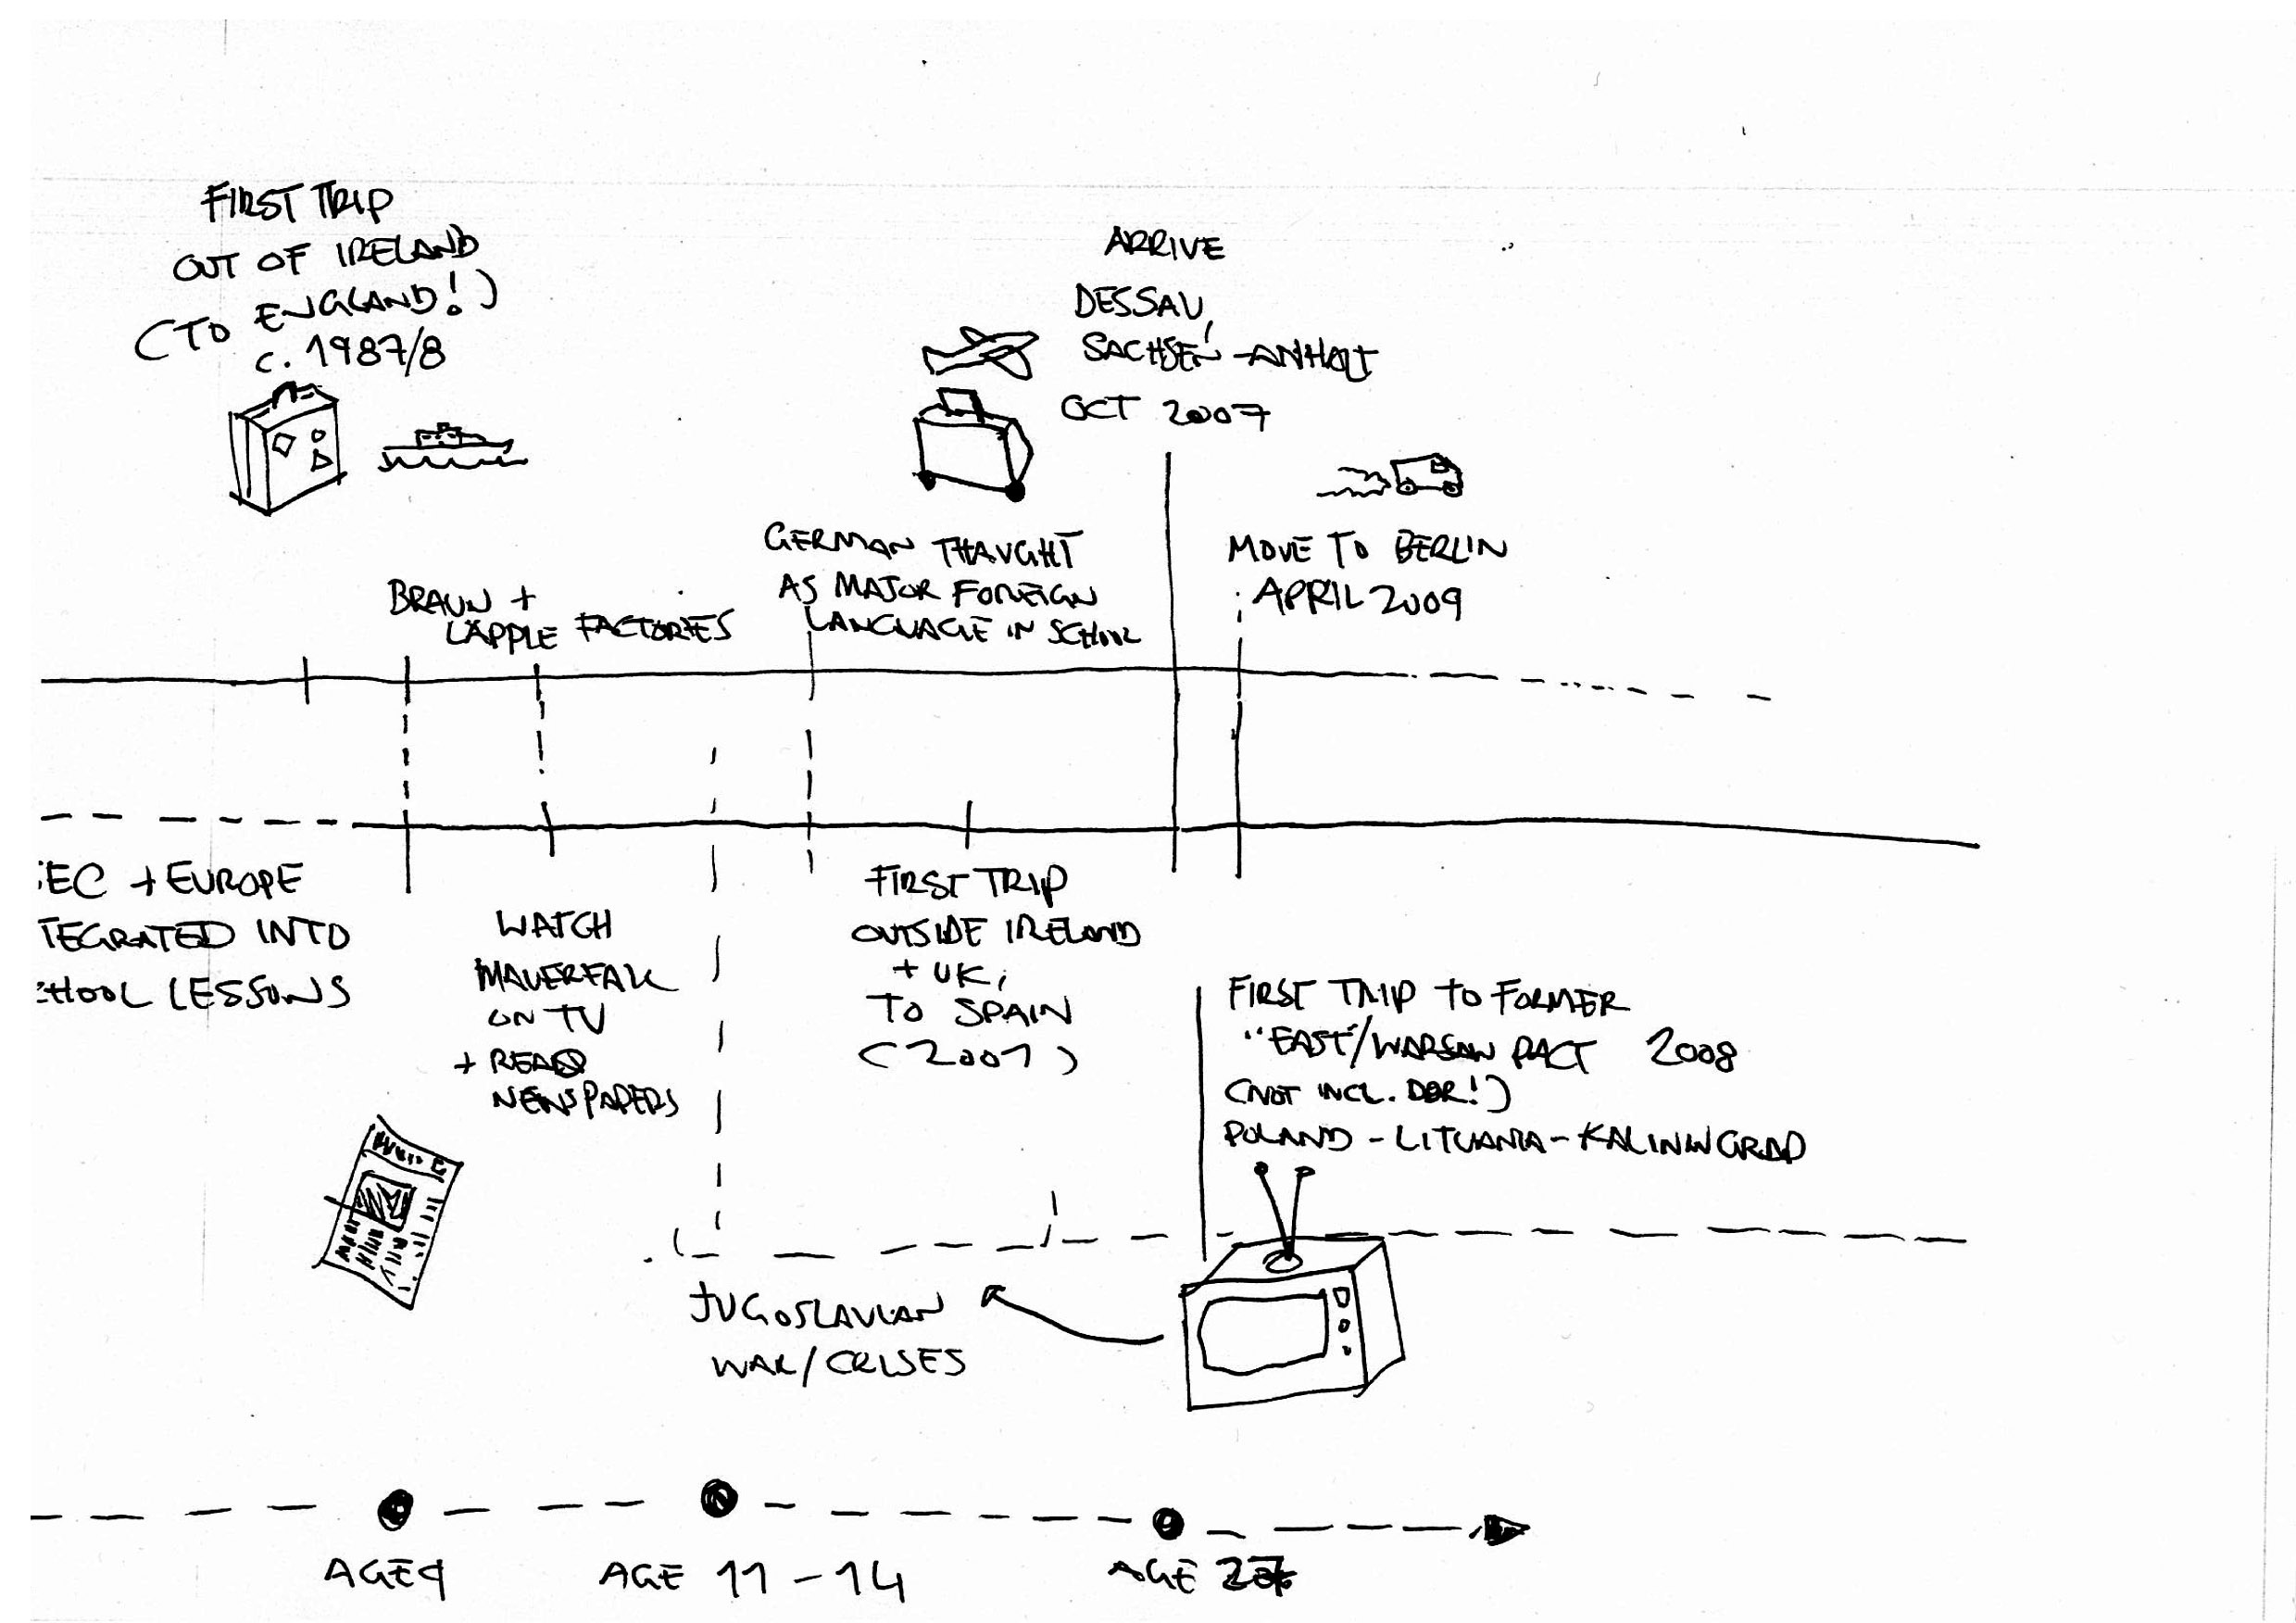 FIRST TRIP
OUT OF IRELAND
(TO ENGLAND!)
C. 1987/8
ARRIVE
DESSAU,
SACHSEN-ANHALT
OCT 2007
BRAUN +
LÄPPLE FACTORIES
GERMAN THAUGHT
AS MAJOR FOREIGN
LANGUAGE IN SCHOOL
MOVE TO BERLIN
APRIL 2009
EC + EUROPE
TEGRATED INTO
HOOL LESSONS
WATCH
MAUERFALL
ON TV
+ READ
NEWSPAPERS
FIRST TRIP
OUTSIDE IRELAND
+ UK,
TO SPAIN
(2001)
FIRST TRIP TO FORMER
"EAST/WARSAW PACT 2008
(NOT INCL. DDR!)
POLAND - LITUANIA - KALININGRAD
JUGOSLAVIAN
WAR/CRISES
AGE 9
AGE 11-14
AGE